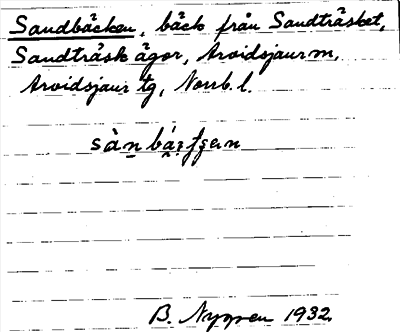 Sandbäcken, bäck från Sandträsket,
Sandträsk ägor, Arvidsjaur m,
Arvidsjaur tg, Norrb. l.
B. Nyman 1932.